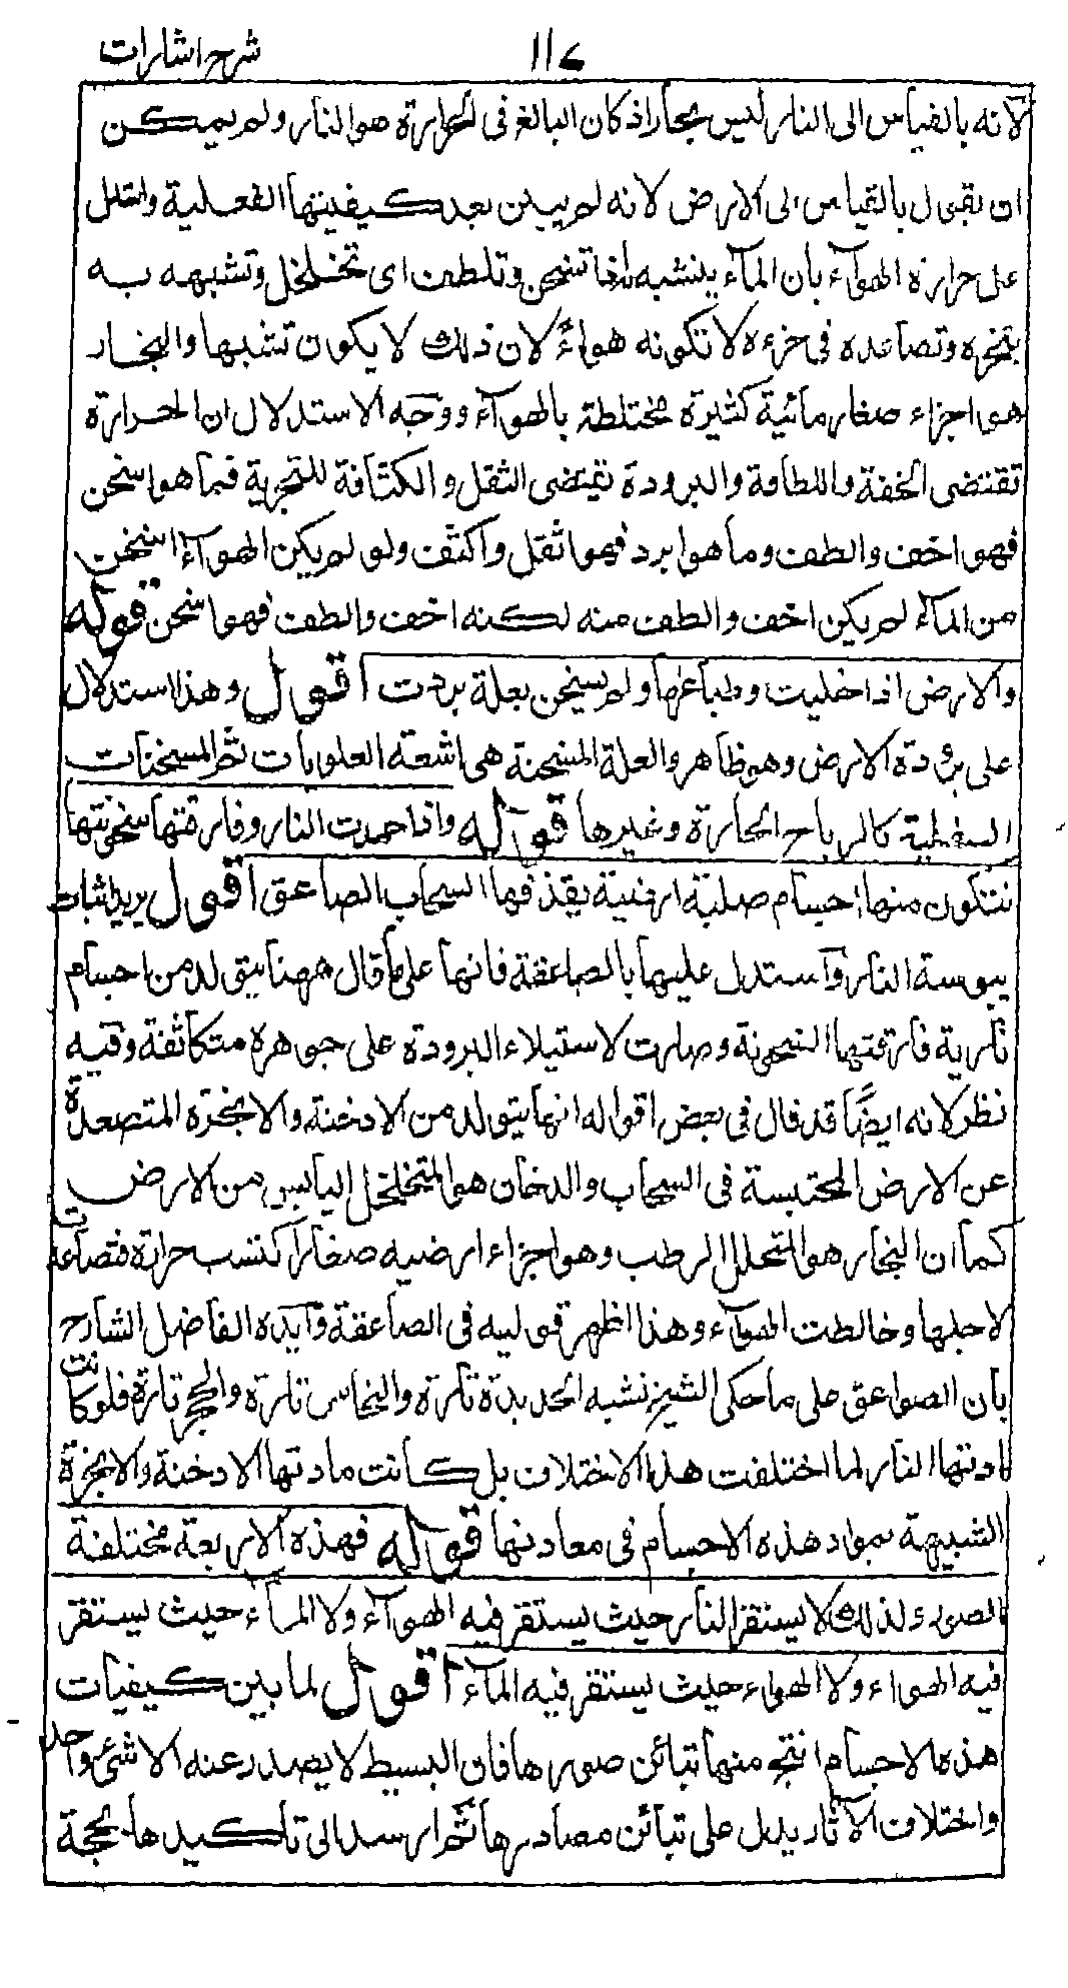 شرح اشارات
١١٧
لانه بالقياس الى النار ليس بحار اذ كان البالغ فى الحرارة هو النار ولم يمكن
ان يقول بالقياس الى الارض لانه لم يبين بعد كيفيتها الفعلية واستدل
على حرارة الهوآء بان المآء يتشبه به اذا تسخن وتلطف اى تخلخل وتشبهه به
بتبخره وتصاعده فى حيزه لا تكونه هوآء لان ذلك لا يكون تشبها والبخار
هو اجزاء صغار مائية كثيرة مختلطة بالهوآء ووجه الاستدلال ان الحرارة
تقتضى الخفة واللطافة والبرودة تقتضى الثقل والكثافة للتجربة فما هو اسخن
فهو اخف والطف وما هو ابرد فهو اثقل واكثف ولو لم يكن الهوآء اسخن
من المآء لم يكن اخف والطف منه لكنه اخف والطف فهو اسخن قوله
والارض اذا خليت وطباعها ولم يسخن بعلة بردت اقول وهذا استدلال
على برودة الارض وهو ظاهر والعلة المسخنة هى اشعة العلويات ثم المسخنات
السفلية كالرياح الحارة وغيرها قوله واذا خمدت النار وفارقتها سخونتها
تتكون منها اجسام صلبة ارضية يقذفها السحاب الصاعق اقول يريد اثبات
يبوسة النار واستدل عليها بالصاعقة فانها على ما قال ههنا يتولد من اجسام
نارية فارقتها السخونة وصارت لاستيلاء البرودة على جوهره متكاثفة وفيه
نظر لانه ايضًا قد قال فى بعض اقواله انها يتولد من الادخنة والابخرة المتصعدة
عن الارض المحتبسة فى السحاب والدخان هو المتخلخل اليابس من الارض
كما ان البخار هو المتحلل الرطب وهو اجزاء ارضيه صغار اكتسب حرارة فتصاعدت
لاجلها وخالطت الهوآء وهذا اظهر قوليه فى الصاعقة وآيده الفاضل الشارح
بان الصواعق على ما حكى الشيخ تشبه الحديدة تارة والنحاس تارة والحجر تارة فلو كانت
مادتها النار لما اختلفت هذا الاختلاف بل كانت مادتها الادخنة والابخرة
الشبيهة بمواد هذه الاجسام فى معادنها قوله فهذه الاربعة مختلفة
الصور ولذلك لا يستقر النار حيث يستقر فيه الهوآء ولا المآء حيث يستقر
فيه الهواء ولا الهواء حيث يستقر فيه المآء اقول لما بين كيفيات
هذه الاجسام انتج منها تبائن صورها فان البسيط لا يصدر عنه الا شئ واحد
واختلاف الآثار يدل على تبائن مصادرها ثم ارسد الى تاكيدها بحجة